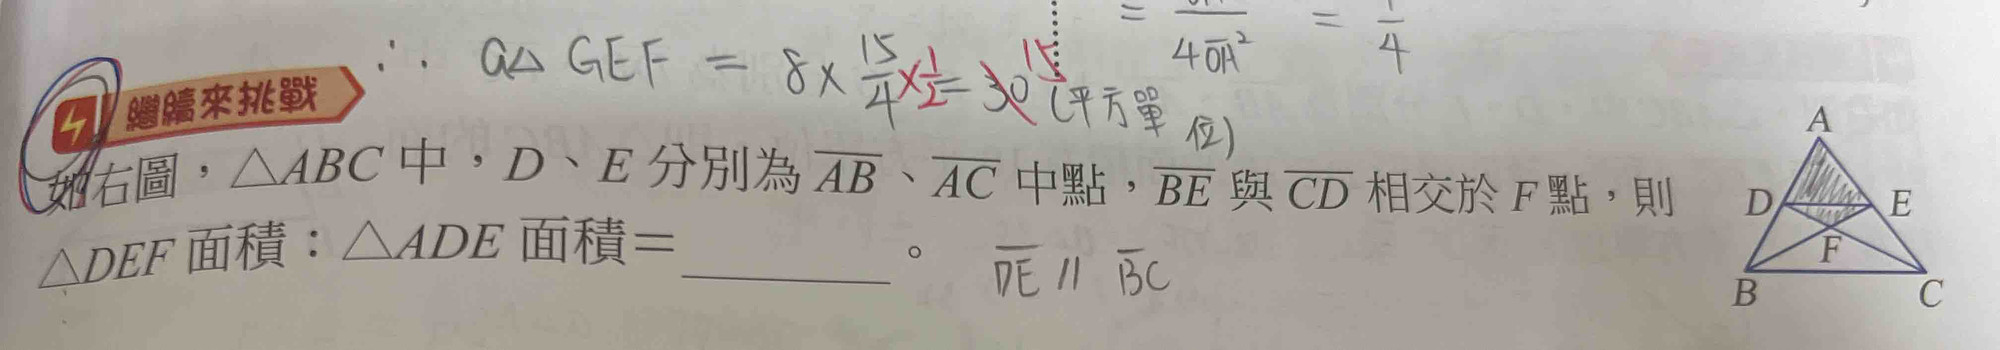 = 4OA² = 1/4
∴ a△GEF = 8 × 15/4 × 1/2 = 30 15 (平方單位)
繼續來挑戰
如右圖，△ABC 中，D、E 分別為 A̅B̅、A̅C̅ 中點，B̅E̅ 與 C̅D̅ 相交於 F 點，則
△DEF 面積：△ADE 面積＝＿＿＿＿。 D̅E̅ // B̅C̅
A
D E
F
B C